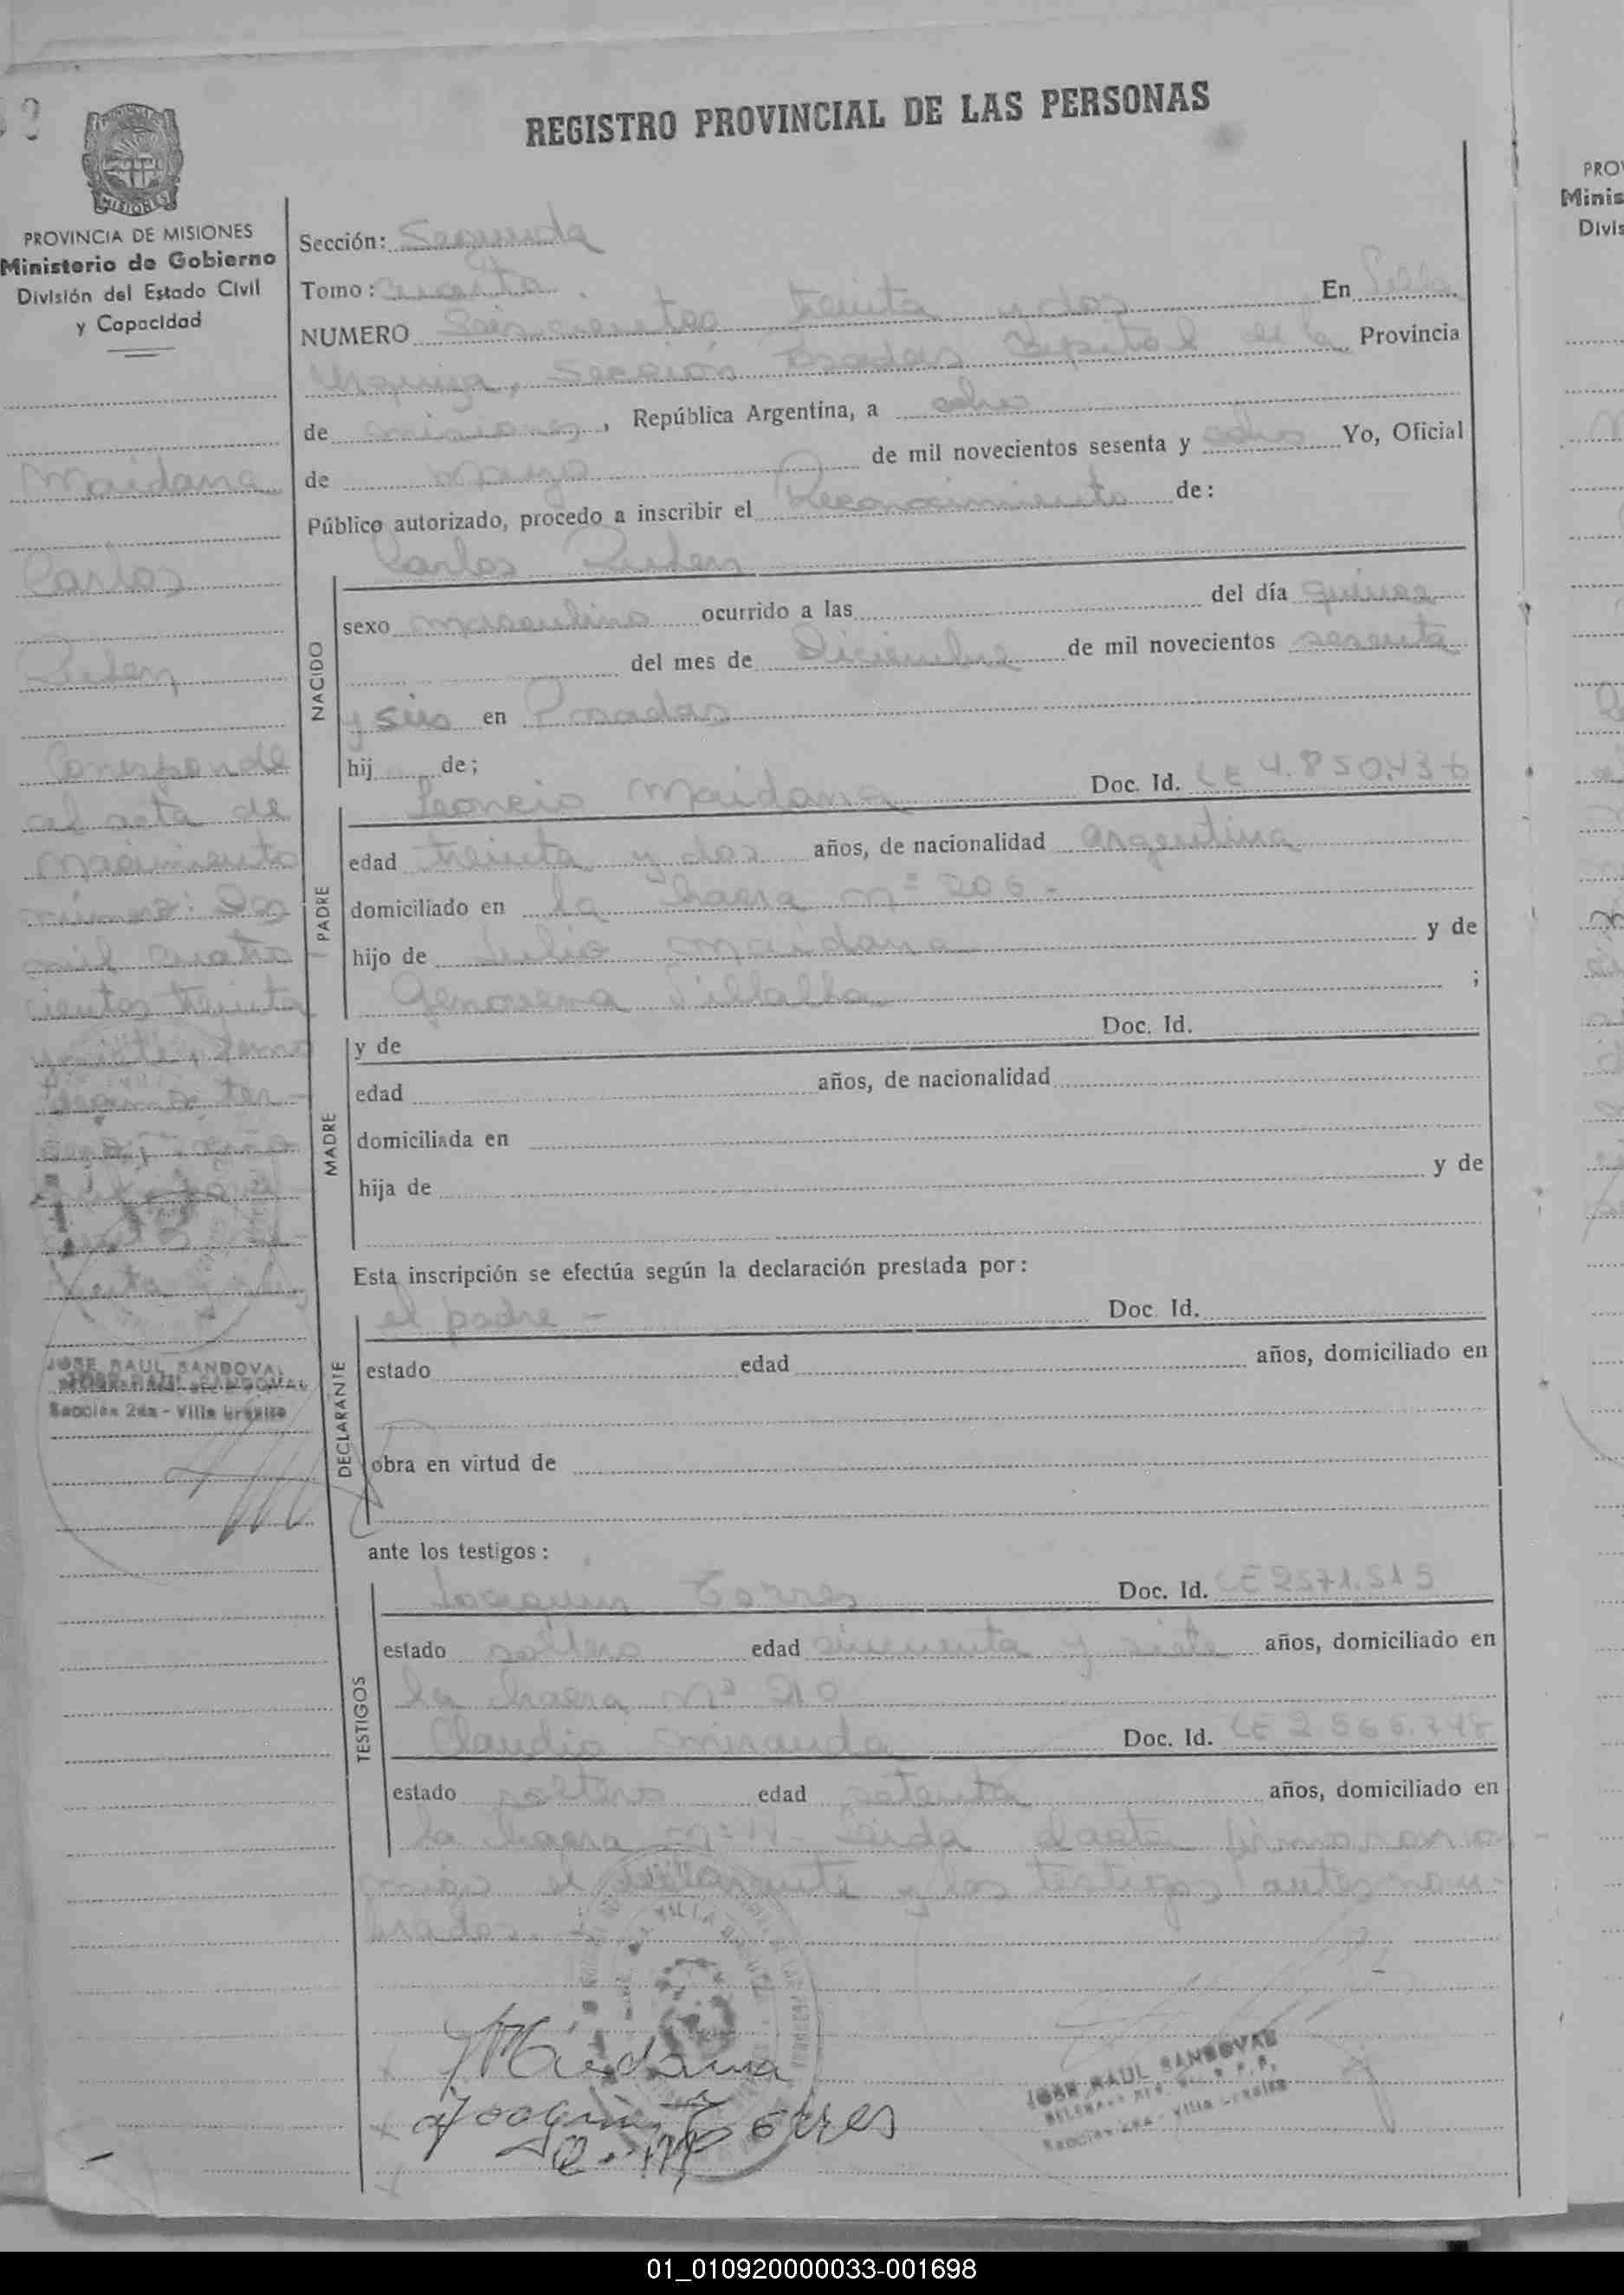 REGISTRO PROVINCIAL DE LAS PERSONAS
MISIONES
PROVINCIA DE MISIONES
Ministerio de Gobierno
División del Estado Civil
y Capacidad
Maidana
Carlos
Ruben
Corresponde
al acta de
nacimiento
número: Dos
mil cuatro
cientos treinta
JOSE RAUL SANDOVAL
Sección 2da - Villa Urquiza
Sección: Segunda
Tomo: Cuarto
NUMERO Seiscientos treinta y dos En Villa
Urquiza, Sección Posadas Capital de la Provincia
de Misiones, República Argentina, a ocho
de Mayo de mil novecientos sesenta y ocho Yo, Oficial
Público autorizado, procedo a inscribir el Reconocimiento de:
Carlos Ruben
NACIDO
sexo masculino ocurrido a las del día quince
del mes de Diciembre de mil novecientos sesenta
y seis en Posadas
hij de;
PADRE
Leoncio Maidana Doc. Id. CE 4.850.436
edad treinta y dos años, de nacionalidad argentina
domiciliado en la chacra nº 206 -
hijo de Julio Maidana y de
Genovera Villalba ;
MADRE
y de Doc. Id.
edad años, de nacionalidad
domiciliada en
hija de y de
Esta inscripción se efectúa según la declaración prestada por:
DECLARANTE
el padre - Doc. Id.
estado edad años, domiciliado en
obra en virtud de
ante los testigos:
TESTIGOS
Joaquin Torres Doc. Id. CE 2571.515
estado soltero edad cincuenta y siete años, domiciliado en
la chacra Nº 210
Claudio Miranda Doc. Id. CE 2.566.748
estado soltero edad setenta años, domiciliado en
la chacra nº Leida el acta firmaron con
migo el declarante y los testigos antes nom-
brados. -
Maidana
Joaquin Torres
JOSE RAUL SANDOVAL
Sección 2da - Villa Urquiza
PRO
Minis
Divis
01_010920000033-001698